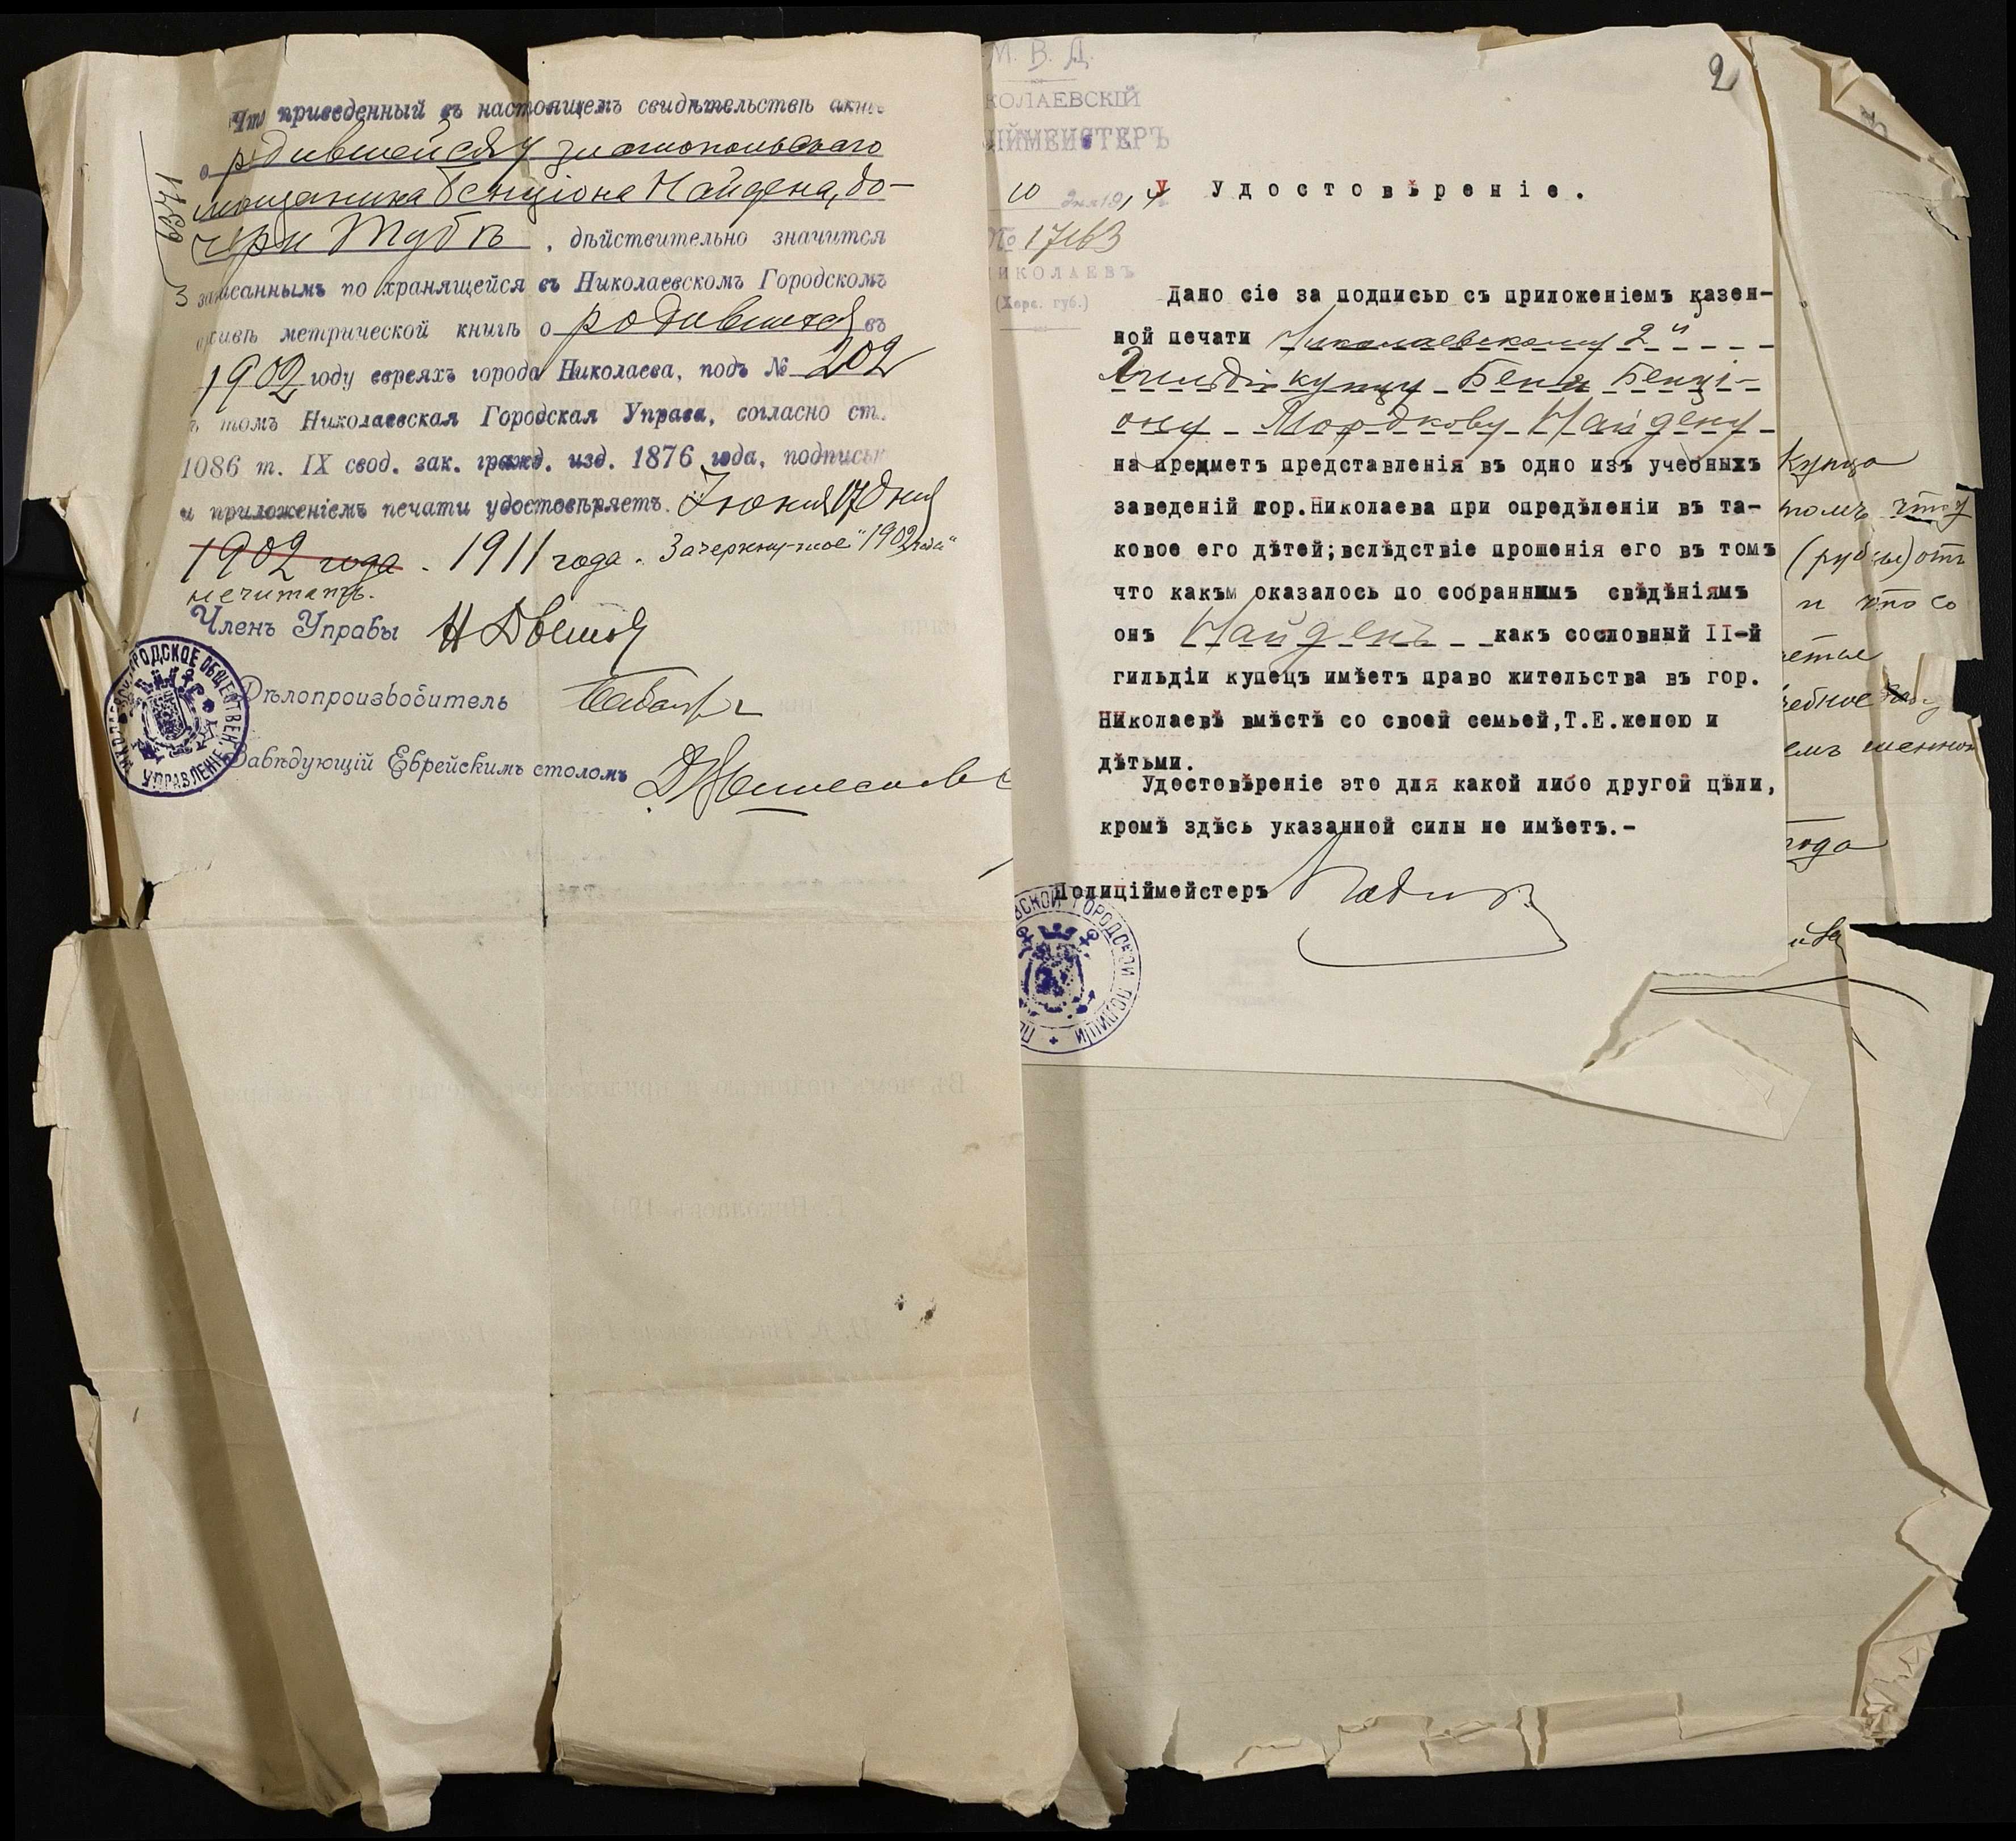 Что приведенный въ настоящемъ свидѣтельствѣ актъ
о родившейся у златопольскаго
мѣщанина Бенціона Найдена, до-
чери Тубѣ, дѣйствительно значится
записаннымъ по хранящейся въ Николаевскомъ Городскомъ
архивѣ метрической книгѣ о родившихся въ
1902 году евреяхъ города Николаева, подъ № 202
въ томъ Николаевская Городская Управа, согласно ст.
1086 т. IX свод. зак. гражд. изд. 1876 года, подписью
и приложеніемъ печати удостовѣряетъ. Іюня 17 дня
1902 года - 1911 года. Зачеркнутое "1902 года"
не читать.
Членъ Управы
Дѣлопроизводитель
Завѣдующій Еврейскимъ столомъ
НИКОЛАЕВСКОЕ ГОРОДСКОЕ ОБЩЕСТВЕН. УПРАВЛЕНІЕ
2
М. В. Д.
КОЛАЕВСКІЙ
ІЙМЕЙСТЕРЪ
10
№ 17163
ИКОЛАЕВЪ
(Херс. губ.)
Удостовѣреніе.
Дано сіе за подписью съ приложеніемъ казен-
ной печати Николаевскому 2й
Гильдіи купцу Беня Бенці-
ону Мордкову Найдену
на предметъ представленія въ одно изъ учебныхъ
заведеній гор.Николаева при опредѣленіи въ та-
ковое его дѣтей;вслѣдствіе прошенія его въ томъ
что какъ оказалось по собраннымъ свѣдѣніямъ
онъ Найденъ какъ сословный II-й
гильдіи купецъ имѣетъ право жительства въ гор.
Николаевѣ вмѣстѣ со своей семьей,Т.Е.женою и
дѣтьми.
Удостовѣреніе это для какой либо другой цѣли,
кромѣ здѣсь указанной силы не имѣетъ.-
Полиціймейстеръ
ВСКОЙ ГОРОДСКОЙ ПОЛИЦІИ
купца
томъ что
отъ
и что со
года